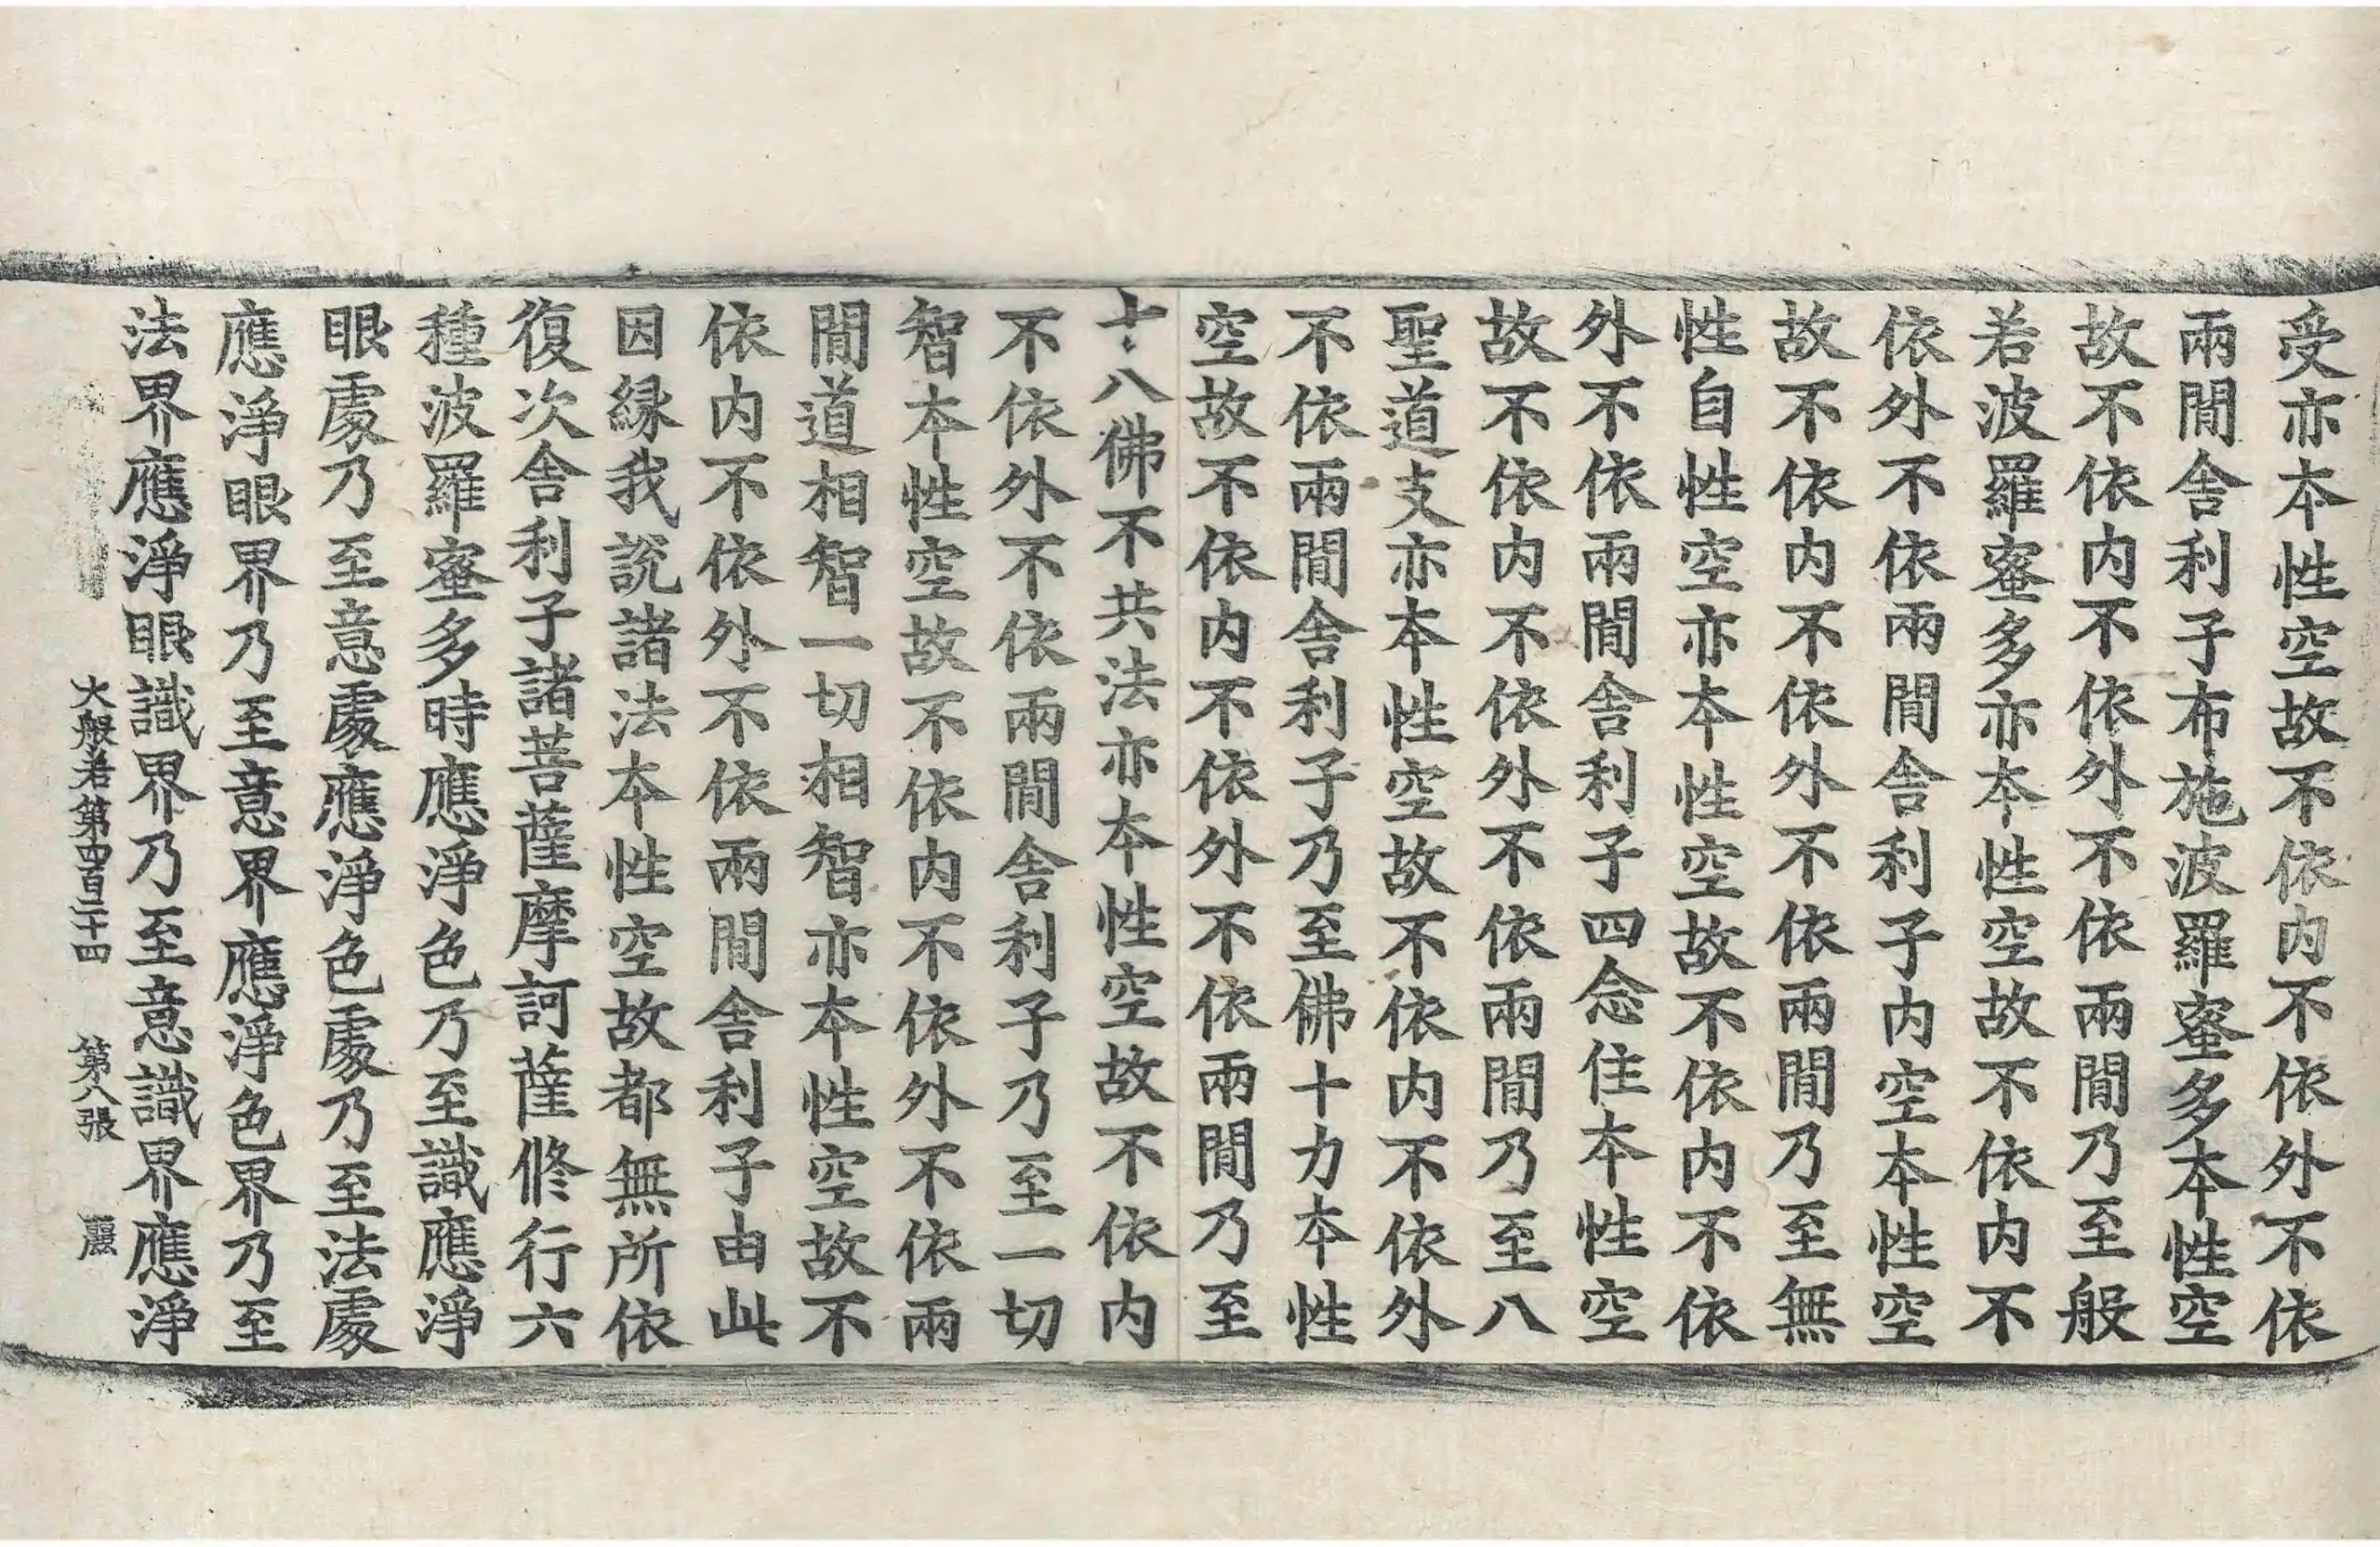 受亦本性空故不依内不依外不依
兩閒舎利子布施波羅蜜多本性空
故不依内不依外不依兩閒乃至般
若波羅蜜多亦本性空故不依内不
依外不依兩閒舎利子内空本性空
故不依内不依外不依兩閒乃至無
性自性空亦本性空故不依内不依
外不依兩閒舎利子四念住本性空
故不依内不依外不依兩閒乃至八
聖道支亦本性空故不依内不依外
不依兩閒舎利子乃至佛十力本性
空故不依内不依外不依兩閒乃至
十八佛不共法亦本性空故不依内
不依外不依兩閒舎利子乃至一切
智本性空故不依内不依外不依兩
閒道相智一切相智亦本性空故不
依内不依外不依兩閒舎利子由此
因縁我說諸法本性空故都無所依
復次舎利子諸菩薩摩訶薩修行六
種波羅蜜多時應淨色乃至識應淨
眼處乃至意處應淨色處乃至法處
應淨眼界乃至意界應淨色界乃至
法界應淨眼識界乃至意識界應淨
大般若第四百二十四 第八張 麗